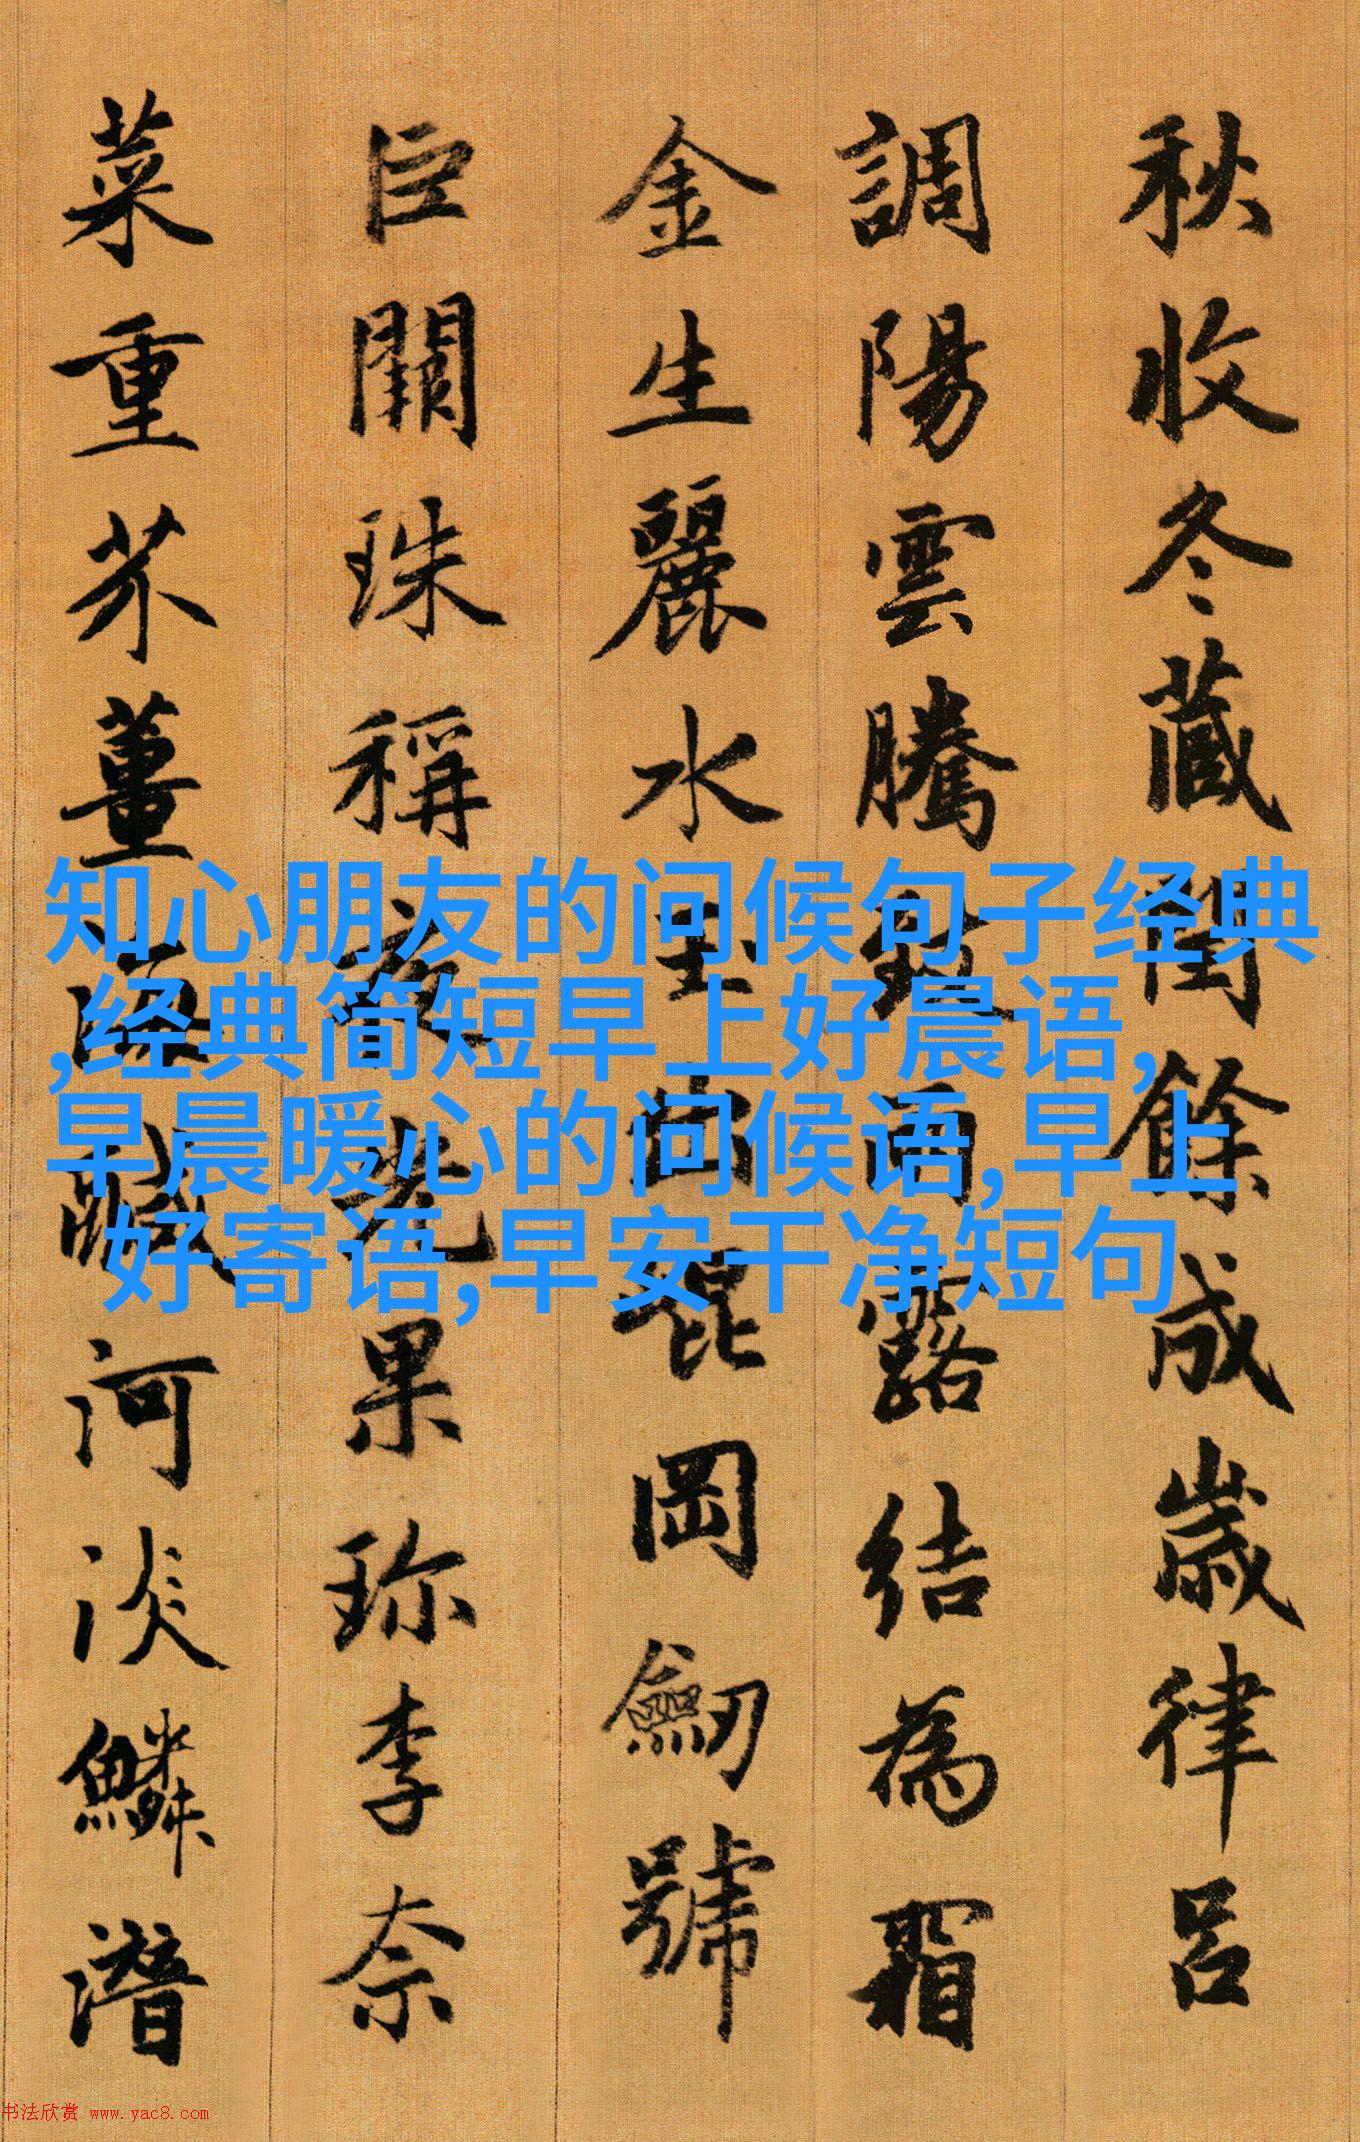 秋收冬藏閏餘成歲律呂
調陽雲騰致雨露結為霜
金生麗水玉出崐岡劒號
巨闕珠稱夜光果珎李柰
菜重芥薑海鹹河淡鱗潛
知心朋友的问候句子经典
,经典简短早上好晨语,
早晨暖心的问候语,早上
好寄语,早安干净短句
书法欣赏 www.yac8.com